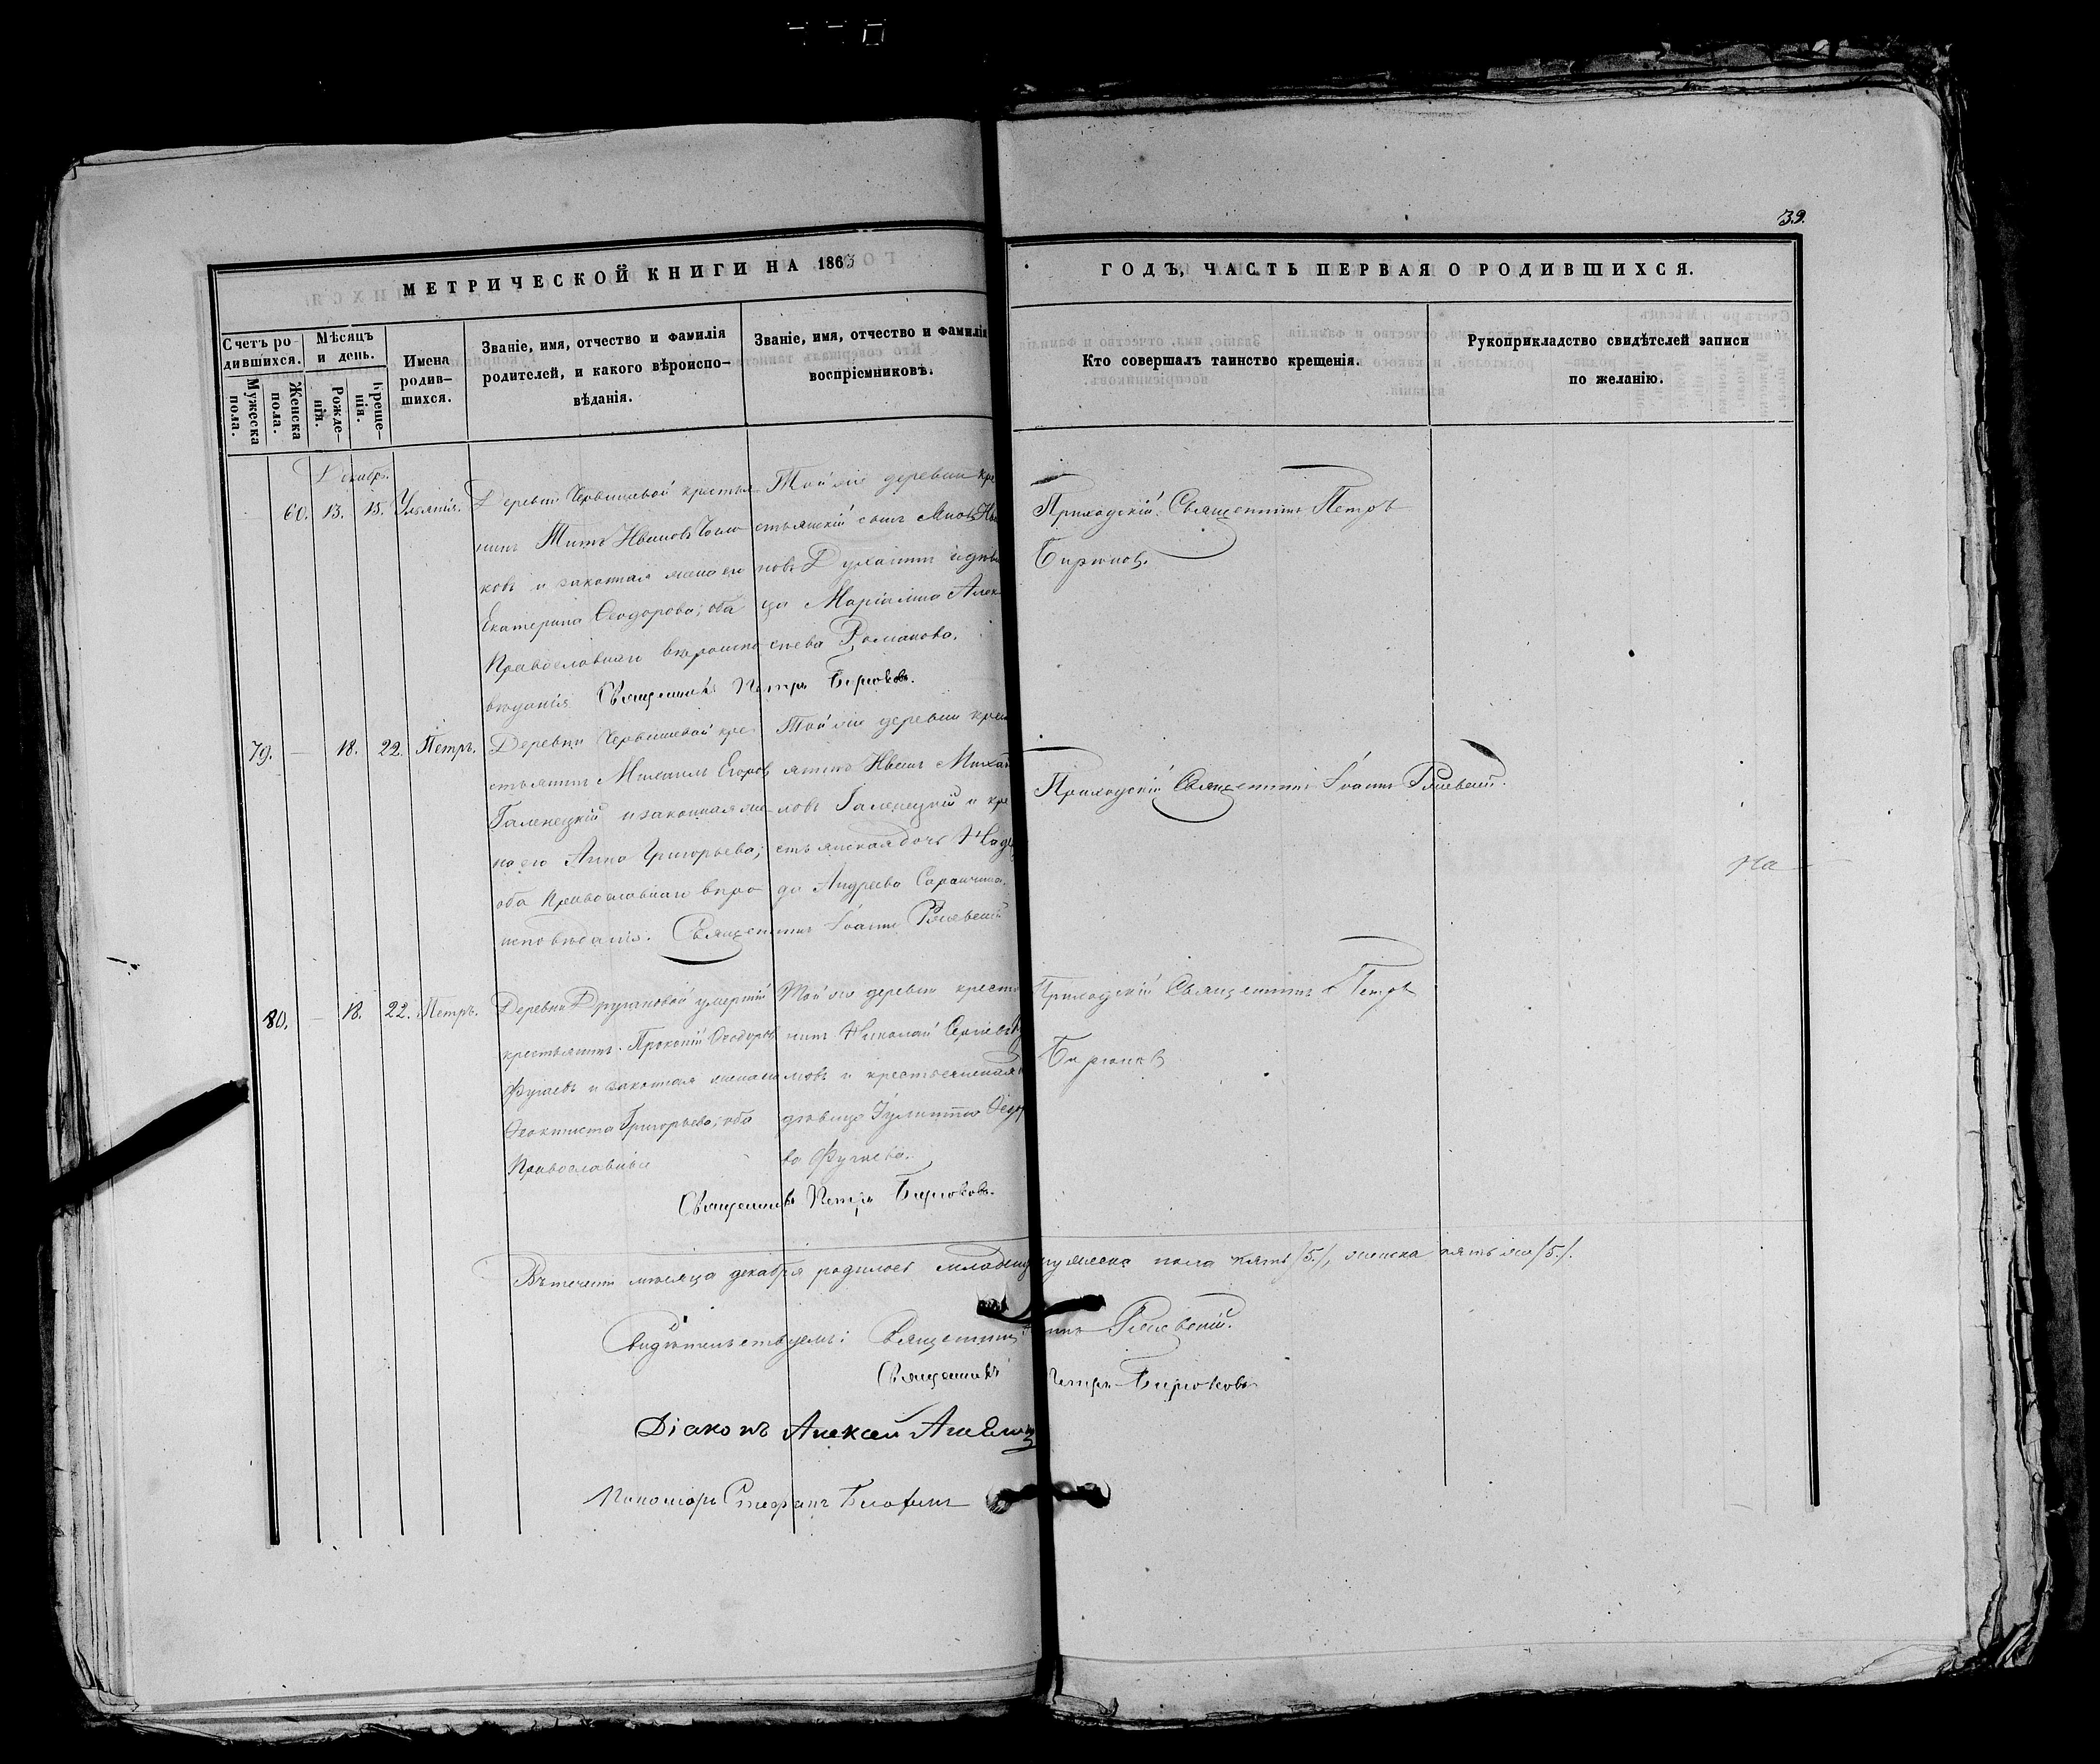 39.
МЕТРИЧЕСКОЙ КНИГИ НА 1863
ГОДЪ, ЧАСТЬ ПЕРВАЯ О РОДИВШИХСЯ.
Счетъ ро-
дившихся.
Мужеска
пола.
Женска
пола.
Мѣсяцъ
и день.
Рожде-
нія.
Креще-
нія.
Имена
родив-
шихся.
Званіе, имя, отчество и фамилія
родителей, и какого вѣроиспо-
вѣданія.
Званіе, имя, отчество и фамилія
воспріемниковъ.
Кто совершалъ таинство крещенія.
Рукоприкладство свидѣтелей записи
по желанію.
Декабрь.
60. 13. 15. Уліанія.
Деревни Червишевой крестья
нинъ Титъ Ивановъ
ковъ и законная жена его
Екатерина Ѳеодорова; оба
Православнаго вѣроиспо
вѣданія.
Той же деревни кре
стьянскій сынъ
новъ и дѣви
ца Маріамна Алек
сѣева Романова.
Священникъ Петръ Бирюковъ.
Приходскій Священникъ Петръ
Бирюковъ.
79. — 18. 22. Петръ.
Деревни Червишевой кре
стьянинъ Михаилъ Егоровъ
Галенецкій и законная же
на его Анна Григорьева;
оба Православнаго вѣро
исповѣданія.
Той же деревни крест
янинъ Иванъ Михай
ловъ Галенецкій и кре
стьянская дочь Надеж
да Андреева
Священникъ Іоаннъ
Приходскій Священникъ Іоаннъ
На
80. — 18. 22. Петръ.
Деревни Другановой умершій
крестьянинъ Прокопій Ѳеодоровъ
Фугаевъ и законная жена его
Ѳеоктиста Григорьева; оба
Православные
Той же деревни кресть
нинъ Николай Сергѣевъ
и крестьянская
дѣвица Іулитта Ѳедо
ва Фугаева.
Священникъ Петръ Бирюковъ.
Приходскій Священникъ Петръ
Бирюковъ
Въ теченіи мѣсяца декабря родилось младенц. мужеска пола пять /5./, женска пять же /5./.
Свидѣтельствуемъ: Священникъ
Священникъ Петръ Бирюковъ
Діаконъ Алексѣй
Пономарь Стефанъ